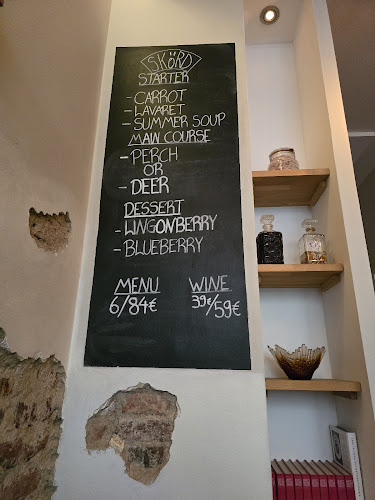 SKÖRD
STARTER
- CARROT
- LAVARET
- SUMMER SOUP
MAIN COURSE
- PERCH
OR
- DEER
DESSERT
- LINGONBERRY
- BLUEBERRY
MENU WINE
6/84€ 39€/59€